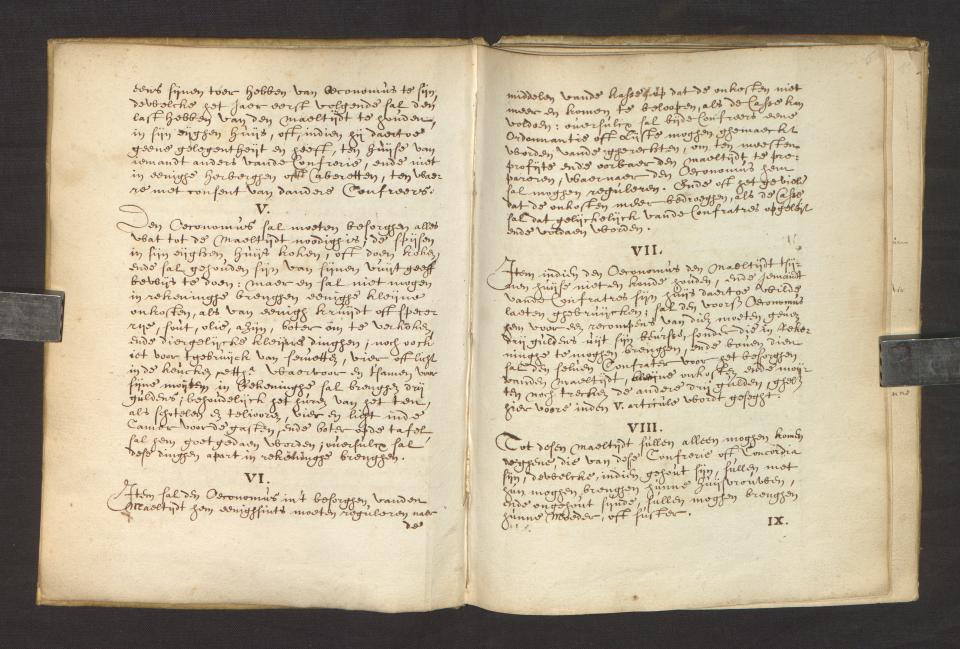 eens sijnen toer hebben van Œconomus te sijn,
dewelcke het Jaer eerst volgende sal den
last hebben van den Maeltijdt te houden,
in sijn eijghen huijs, oft, indien hij daertoe
geene gelegentheijt en heeft, ten huijse van
iemandt anders vande Confrerie, ende niet
in eenighe herberghen oft Cabaretten, ten wae-
re met consent van d'andere Confreers.
V.
Den Œconomus sal moeten besorghen alles
wat tot de Maeltijdt nodigh is, de spijsen
in sijn eijghen huijs koken, oft doen koken,
ende sal gehouden sijn van sijnen uuijtgeeff
bewijs te doen: maer en sal niet mogen
in rekeninghe brenghen eenighe kleijne
onkosten, als van eenigh kruijdt oft spece-
rije, sout, olie, azijn, boter om te verkoken,
ende diergelijcke kleijne dinghen, noch oock
iet voor t'gebruijck van servetten, vier oft licht
in de keucken etc. Waervoor en t'samen voor
sijne moijten in Rekeninghe sal brenghen drij
guldens; behoudelijck het huren van het ten,
als schotelen en teljooren, vier en licht inde
Camer voor de gasten, ende boter op de tafel
sal hem goetgedaen worden; oversulcx sal
dese dinghen apart in rekeninghe brenghen.
VI.
Item sal den Œconomus in't besorghen vanden
Maeltijdt hem eenighsints moeten reguleren naer
de
middelen vande kasse, op dat de onkosten niet
meer en komen te beloopen, als de Casse kan
voldoen: oversulcx sal bijde Confreers eene
Ordonnantie oft Lijste moghen gemaeckt
worden vande gherechten, om ten meesten
profijte ende oorbaer den Maeltijdt te pre-
pareren, waernaer den Œconomus hem
sal moghen reguleren. Ende oft het geviel
dat de onkosten meer bedroeghen, als de Casse
sal dat gelijckelijck vande Confratres opgeleijt
ende voldaen worden.
VII.
Item indien den Œconomus den Maeltijdt t'sij-
nen huijse niet en konde houden, ende iemandt
vande Confratres sijn huijs daertoe wilde
laeten gebruijcken; sal den voorsz Œconomus
hem voor een recompens van dien moeten geven
drij guldens uijt sijn beurse, sonder die in reke-
ninghe te moghen brenghen, ende boven dien
sal den selven Confrater voor het besorghen
vanden Maeltijdt, kleijne onkosten ende moij-
ten noch trecken de andere drij gulden, ghelijck
hier voore inden V. articule wordt geseght.
VIII.
Tot desen Maeltijdt sullen alleen moghen komen
deghene, die van dese Confrerie oft Concordia
sijn, dewelcke, indien gehout sijn, sullen met
hun moghen brenghen hunne huijsvrouwen,
ende ongehout sijnde, sullen moghen brenghen
hunne Moeder, oft suster.
IX.